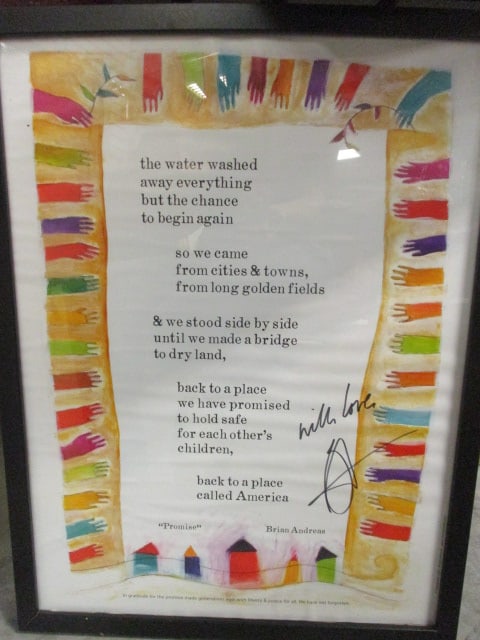 the water washed
away everything
but the chance
to begin again
so we came
from cities & towns,
from long golden fields
& we stood side by side
until we made a bridge
to dry land,
back to a place
we have promised
to hold safe
for each other's
children,
back to a place
called America
with love,
"Promise" Brian Andreas
In gratitude for the promise made generations ago: with liberty & justice for all. We have not forgotten.